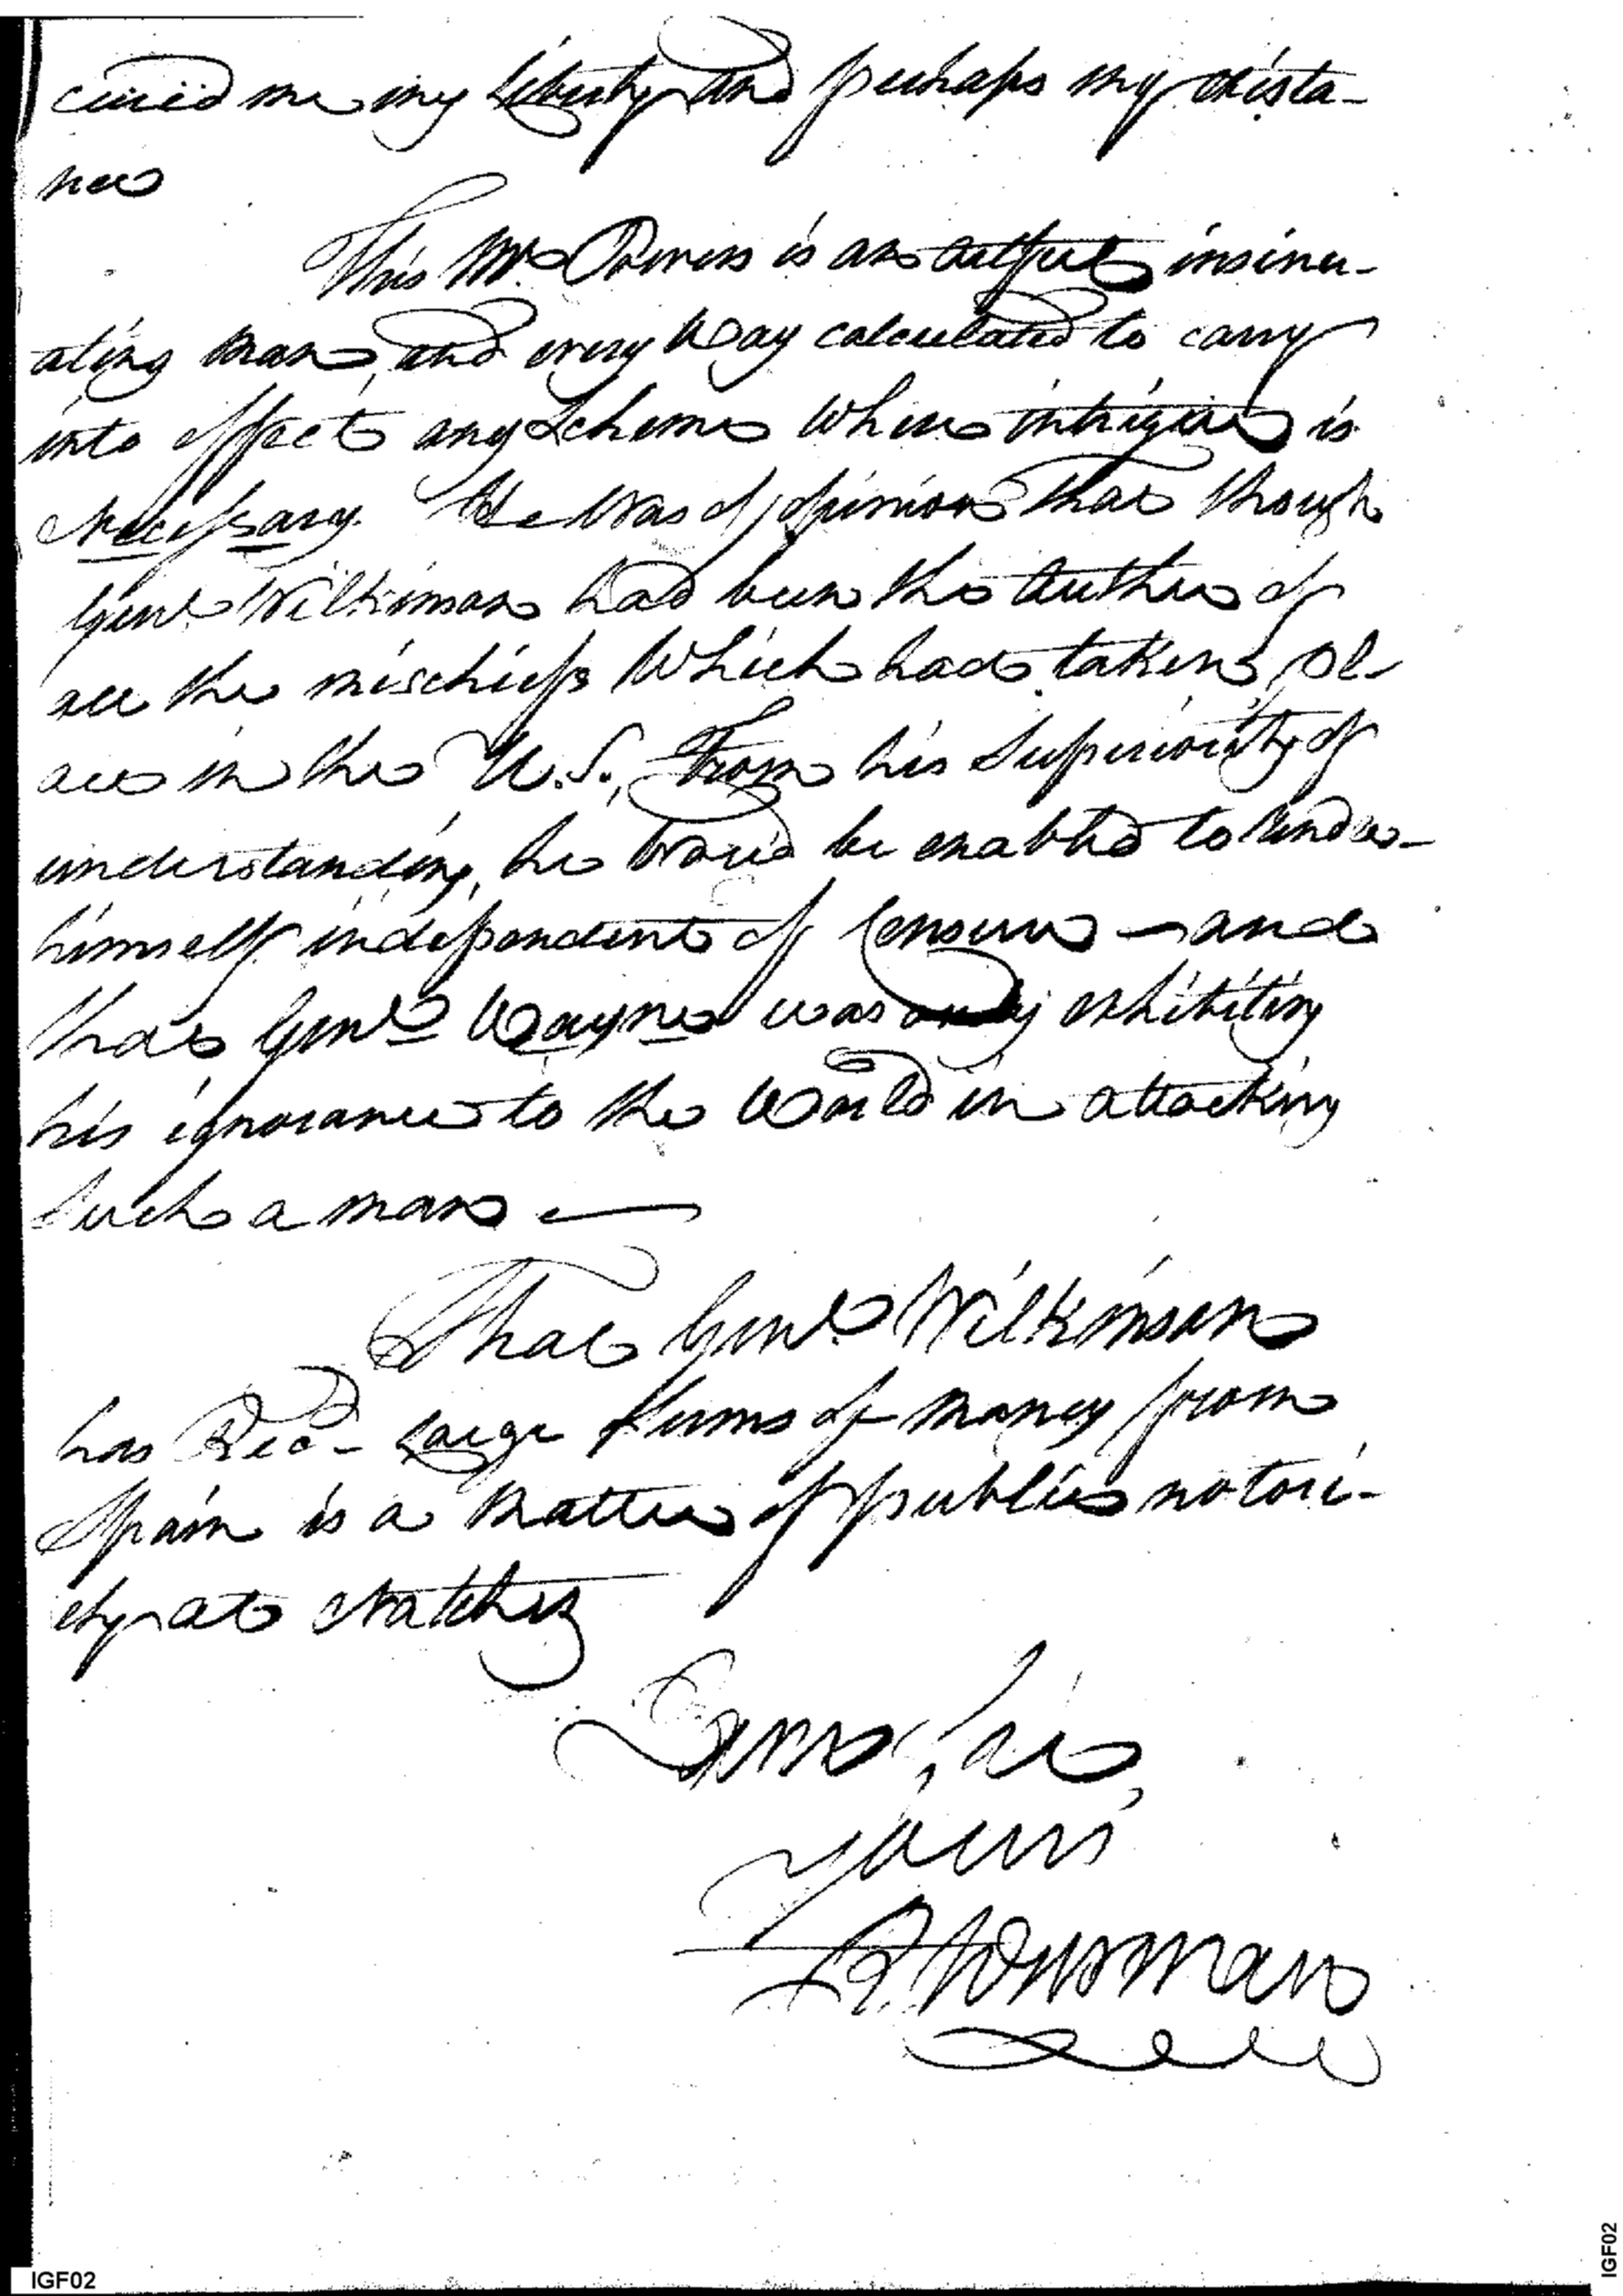 me my Liberty and perhaps my exista-
nce
This Mr. Powers is an artful insinu-
ating man, and every way calculated to carry
into effect any Scheme where intrigue is
Necessary. He was of opinion that though
Genl. Wilkinson had been the Author of
all the mischiefs which had taken pl-
ace in the U.S., From his Superiority of
understanding, he would be enabled to render
himself independent of Censure — and
that Genl. Wayne was only exhibiting
his ignorance to the World in attacking
Such a man —
That Genl. Wilkinson
has Recd. Large Sums of money from
Spain is a matter of public notori-
ety at Natchez
I am, Sir,
Yours
R Newman
IGF02
IGF02